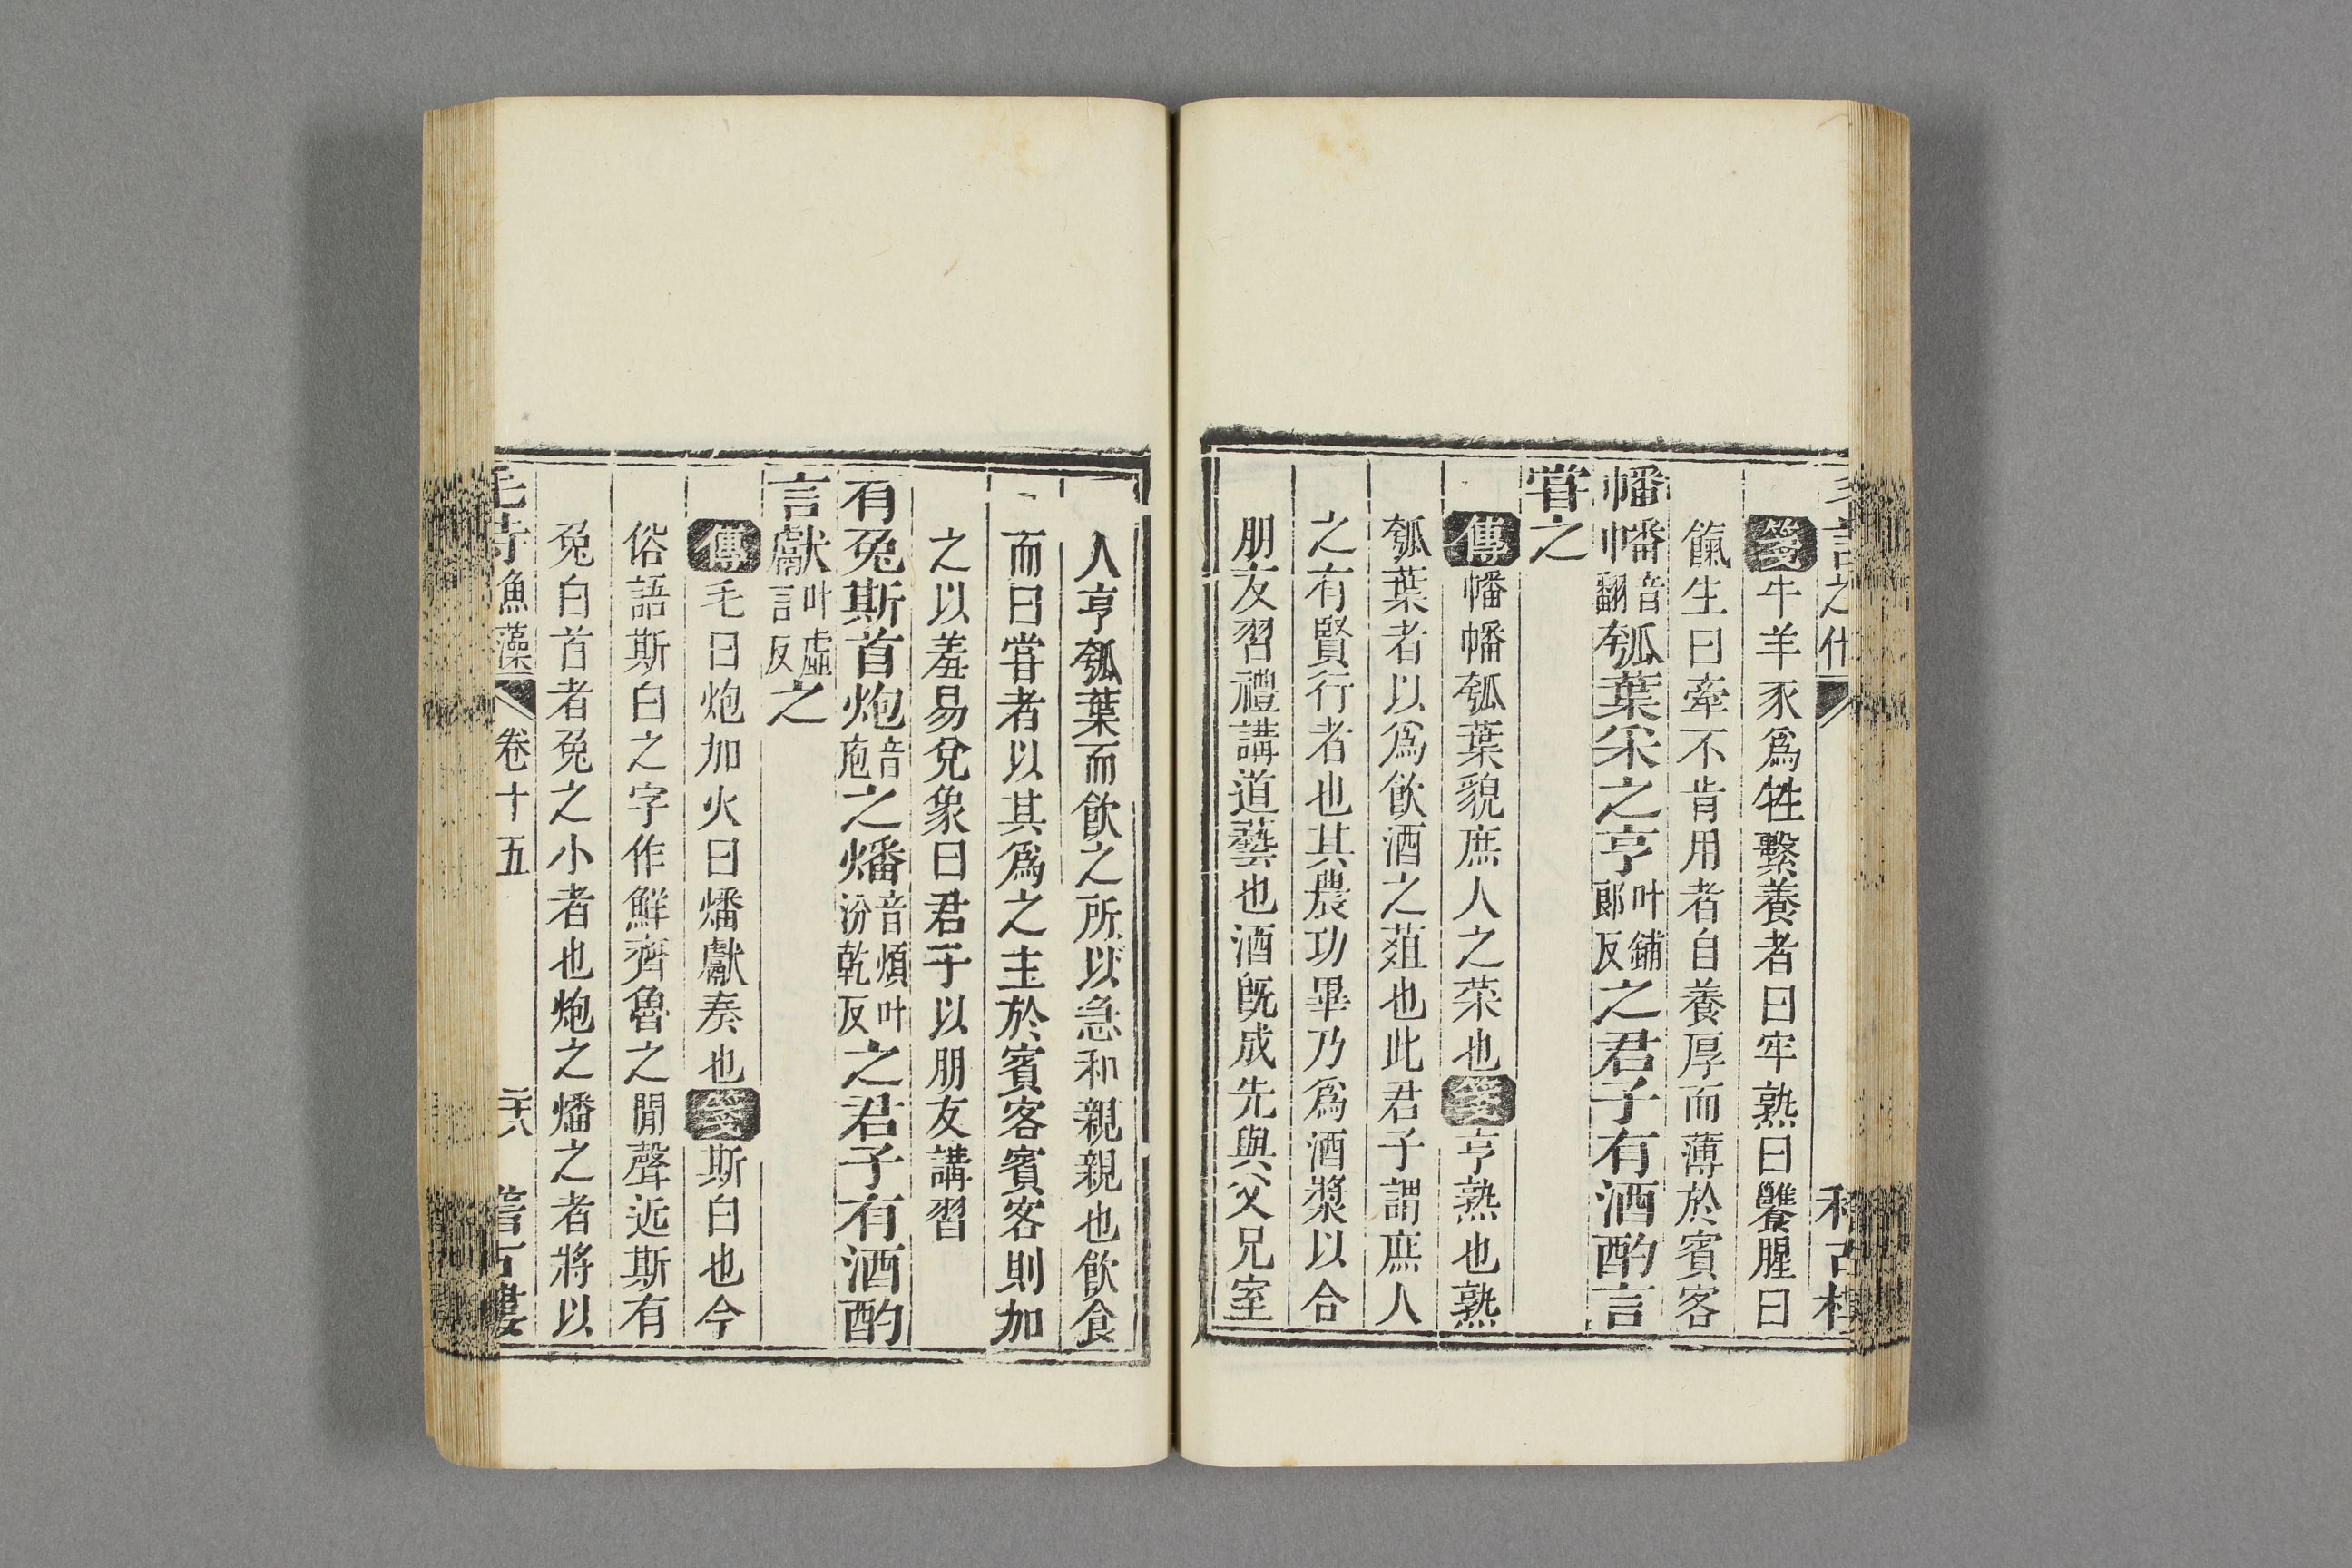 箋牛羊豕爲牲繫養者曰牢熟曰饔腥曰
餼生曰牽不肯用者自養厚而薄於賓客
幡幡音翻瓠葉采之亨叶鋪郎反之君子有酒酌言
甞之
傳幡幡瓠葉貌庶人之菜也箋亨熟也熟
瓠葉者以爲飲酒之菹也此君子謂庶人
之有賢行者也其農功畢乃爲酒漿以合
朋友習禮講道藝也酒旣成先與父兄室
人亨瓠葉而飲之所以急和親親也飲食
而曰甞者以其爲之主於賓客賓客則加
之以羞易兌象曰君子以朋友講習
有兔斯首炮音庖之燔音煩叶汾乾反之君子有酒酌
言獻叶虛言反之
傳毛曰炮加火曰燔獻奏也箋斯白也今
俗語斯白之字作鮮齊魯之閒聲近斯有
兔白首者兔之小者也炮之燔之者將以
毛詩魚藻 卷十五 二十八 藳古樓